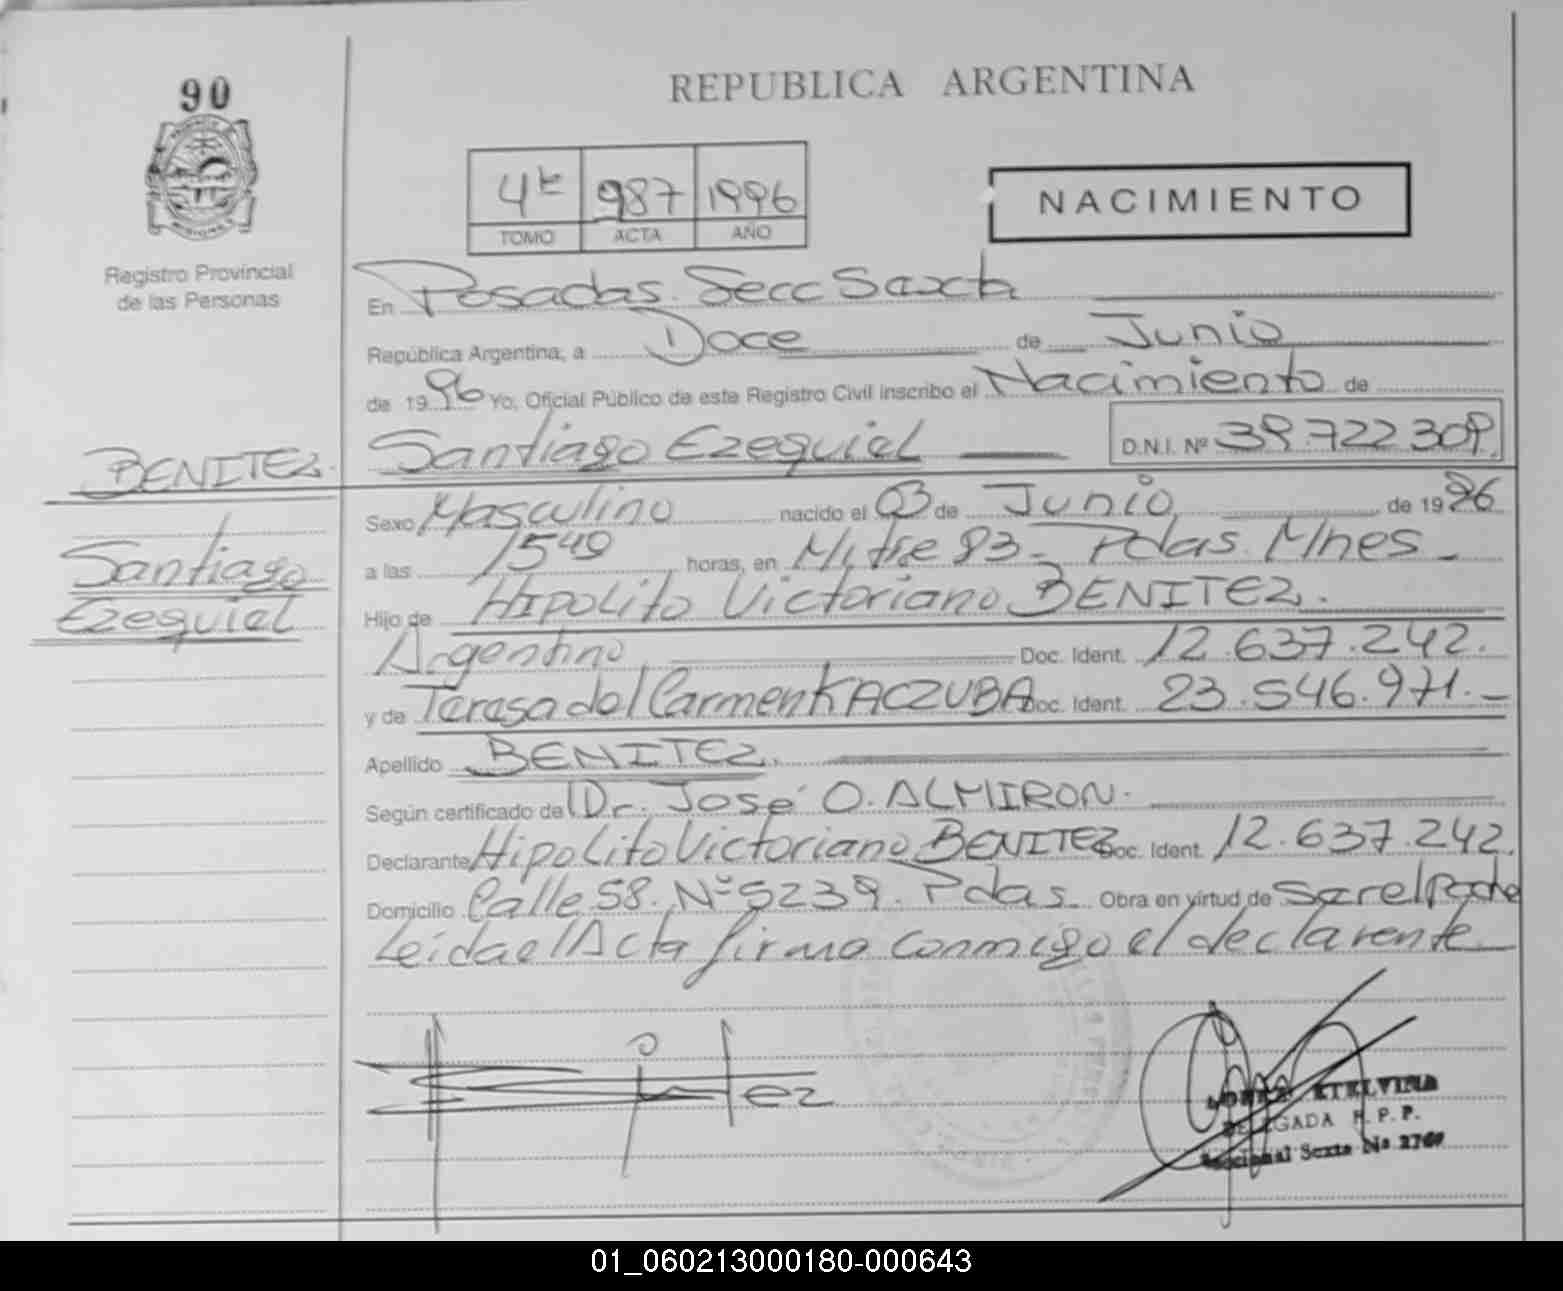 90
Registro Provincial
de las Personas
REPUBLICA ARGENTINA
4t 987 1996
TOMO ACTA AÑO
NACIMIENTO
En Posadas. Secc Sexta
República Argentina, a Doce de Junio
de 1996 Yo, Oficial Público de este Registro Civil inscribo el Nacimiento de
Santiago Ezequiel D.N.I. Nº 39.722.309.
BENITEZ.
Santiago
Ezequiel
Sexo Masculino nacido el 03 de Junio de 1996
a las 15 40 horas, en Mitre 93 - Pdas. Mnes -
Hijo de Hipolito Victoriano BENITEZ.
Argentino Doc. Ident. 12.637.242.
y de Teresa del Carmen KACZUBA Doc. Ident. 23.546.971. -
Apellido BENITEZ.
Según certificado de Dr. José O. ALMIRON.
Declarante Hipolito Victoriano BENITEZ Doc. Ident. 12.637.242.
Domicilio Calle 58. Nº 5239. Pdas. Obra en virtud de ser el Padre
Leída el Acta firma conmigo el declarente
LOPEZ ETELVINA
DELEGADA R.P.P.
Seccional Sexta No 2760
01_060213000180-000643